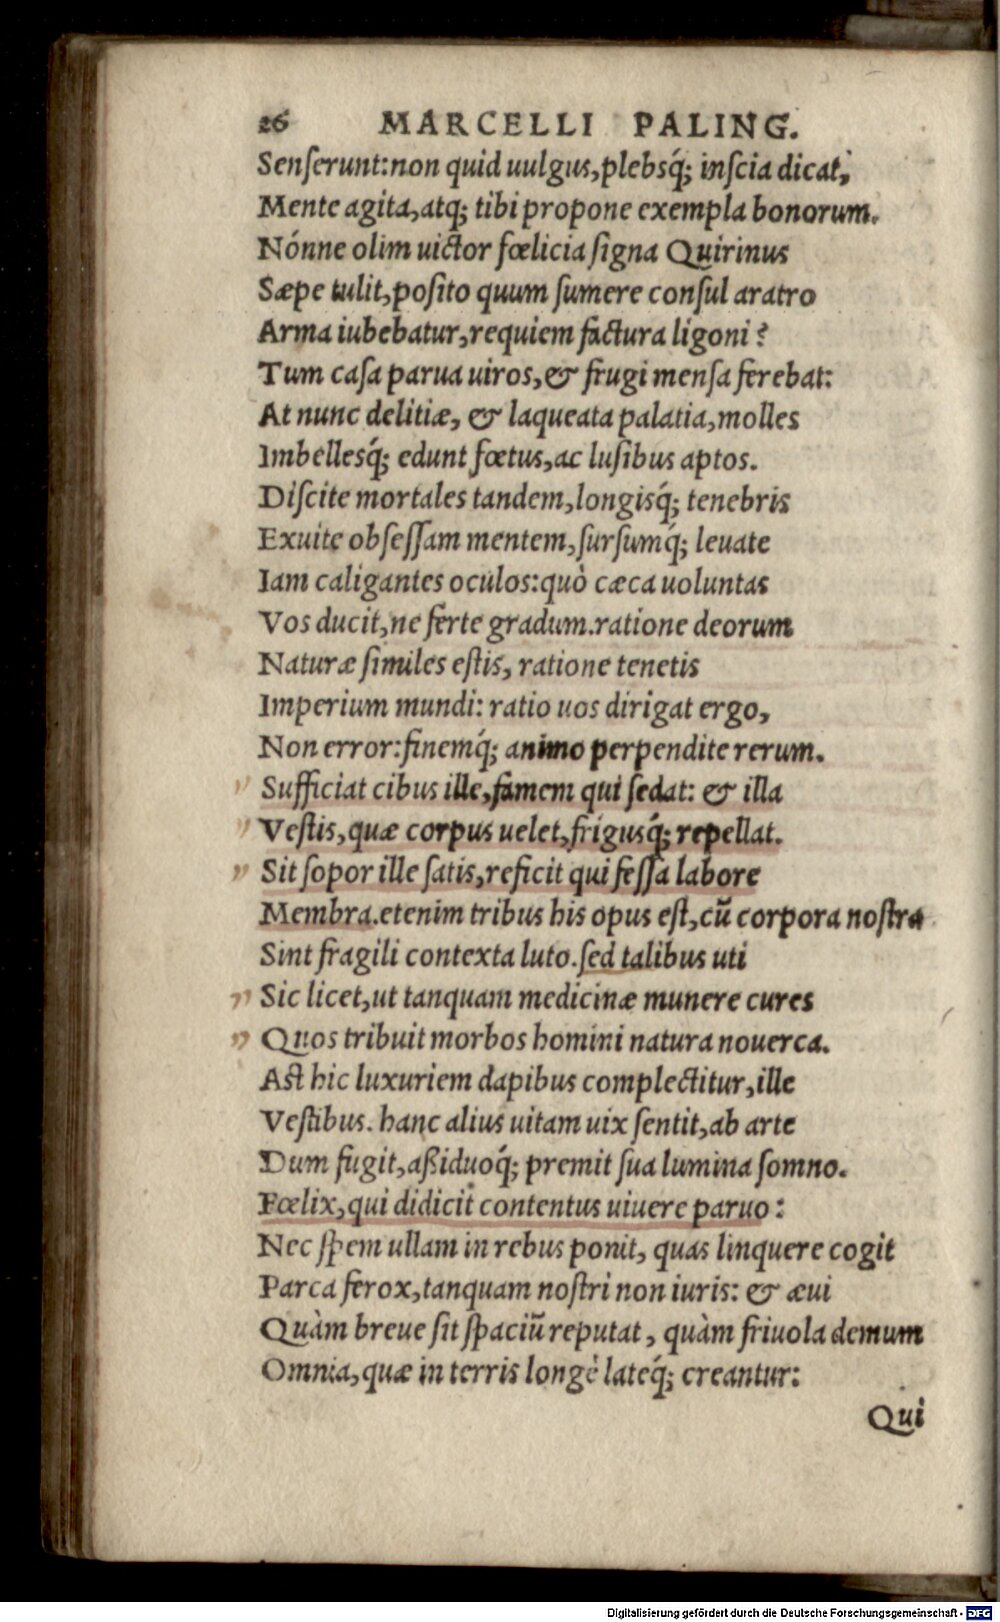 26 MARCELLI PALING.
Senserunt: non quid uulgus, plebsq́; inscia dicat,
Mente agita, atq; tibi propone exempla bonorum.
Nónne olim uictor fœlicia signa Quirinus
Sæpe tulit, posito quum sumere consul aratro
Arma iubebatur, requiem factura ligoni?
Tum casa parua uiros, & frugi mensa ferebat:
At nunc delitiæ, & laqueata palatia, molles
Imbellesq́; edunt fœtus, ac lusibus aptos.
Discite mortales tandem, longisq́; tenebris
Exuite obsessam mentem, sursumq́; leuate
Iam caligantes oculos: quò cæca uoluntas
Vos ducit, ne ferte gradum. ratione deorum
Naturæ similes estis, ratione tenetis
Imperium mundi: ratio uos dirigat ergo,
Non error: finemq́; animo perpendite rerum.
" Sufficiat cibus ille, famem qui sedat: & illa
" Vestis, quæ corpus uelet, frigusq́; repellat.
" Sit sopor ille satis, reficit qui fessa labore
Membra. etenim tribus his opus est, cũ corpora nostra
Sint fragili contexta luto. sed talibus uti
" Sic licet, ut tanquam medicinæ munere cures
" Quos tribuit morbos homini natura nouerca.
Ast hic luxuriem dapibus complectitur, ille
Vestibus. hanc alius uitam uix sentit, ab arte
Dum fugit, aßiduoq́; premit sua lumina somno.
Fœlix, qui didicit contentus uiuere paruo:
Nec spem ullam in rebus ponit, quas linquere cogit
Parca ferox, tanquam nostri non iuris: & æui
Quàm breue sit spaciũ reputat, quàm friuola demum
Omnia, quæ in terris longè lateq́; creantur:
Qui
Digitalisierung gefördert durch die Deutsche Forschungsgemeinschaft - DFG